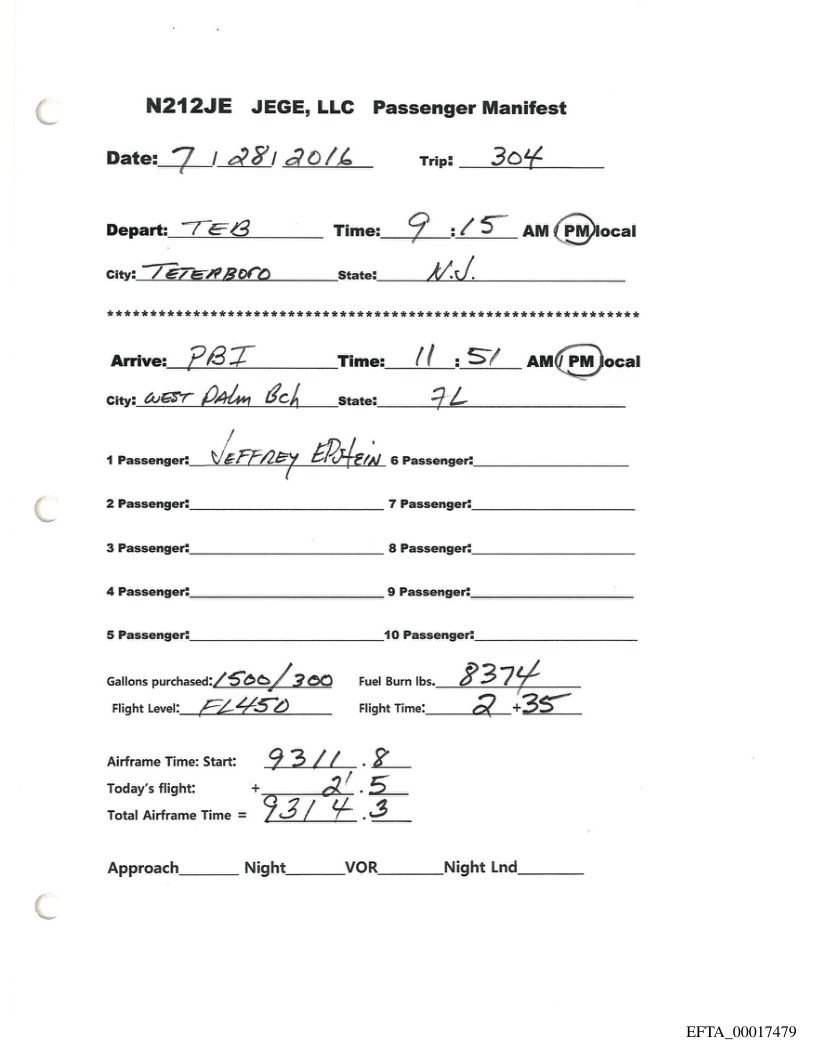 N212JE JEGE, LLC Passenger Manifest
Date: 7 / 28 / 2016 Trip: 304
Depart: TEB Time: 9 : 15 AM / PM local
City: TETERBORO State: N.J.
***************************************************************
Arrive: PBI Time: 11 : 51 AM / PM local
City: WEST PALM Bch State: FL
1 Passenger: JEFFREY EPSTEIN 6 Passenger:
2 Passenger: 7 Passenger:
3 Passenger: 8 Passenger:
4 Passenger: 9 Passenger:
5 Passenger: 10 Passenger:
Gallons purchased: 1500/300 Fuel Burn lbs. 8374
Flight Level: FL450 Flight Time: 2 + 35
Airframe Time: Start: 9311 . 8
Today's flight: + 2 . 5
Total Airframe Time = 9314 . 3
Approach Night VOR Night Lnd
EFTA_00017479